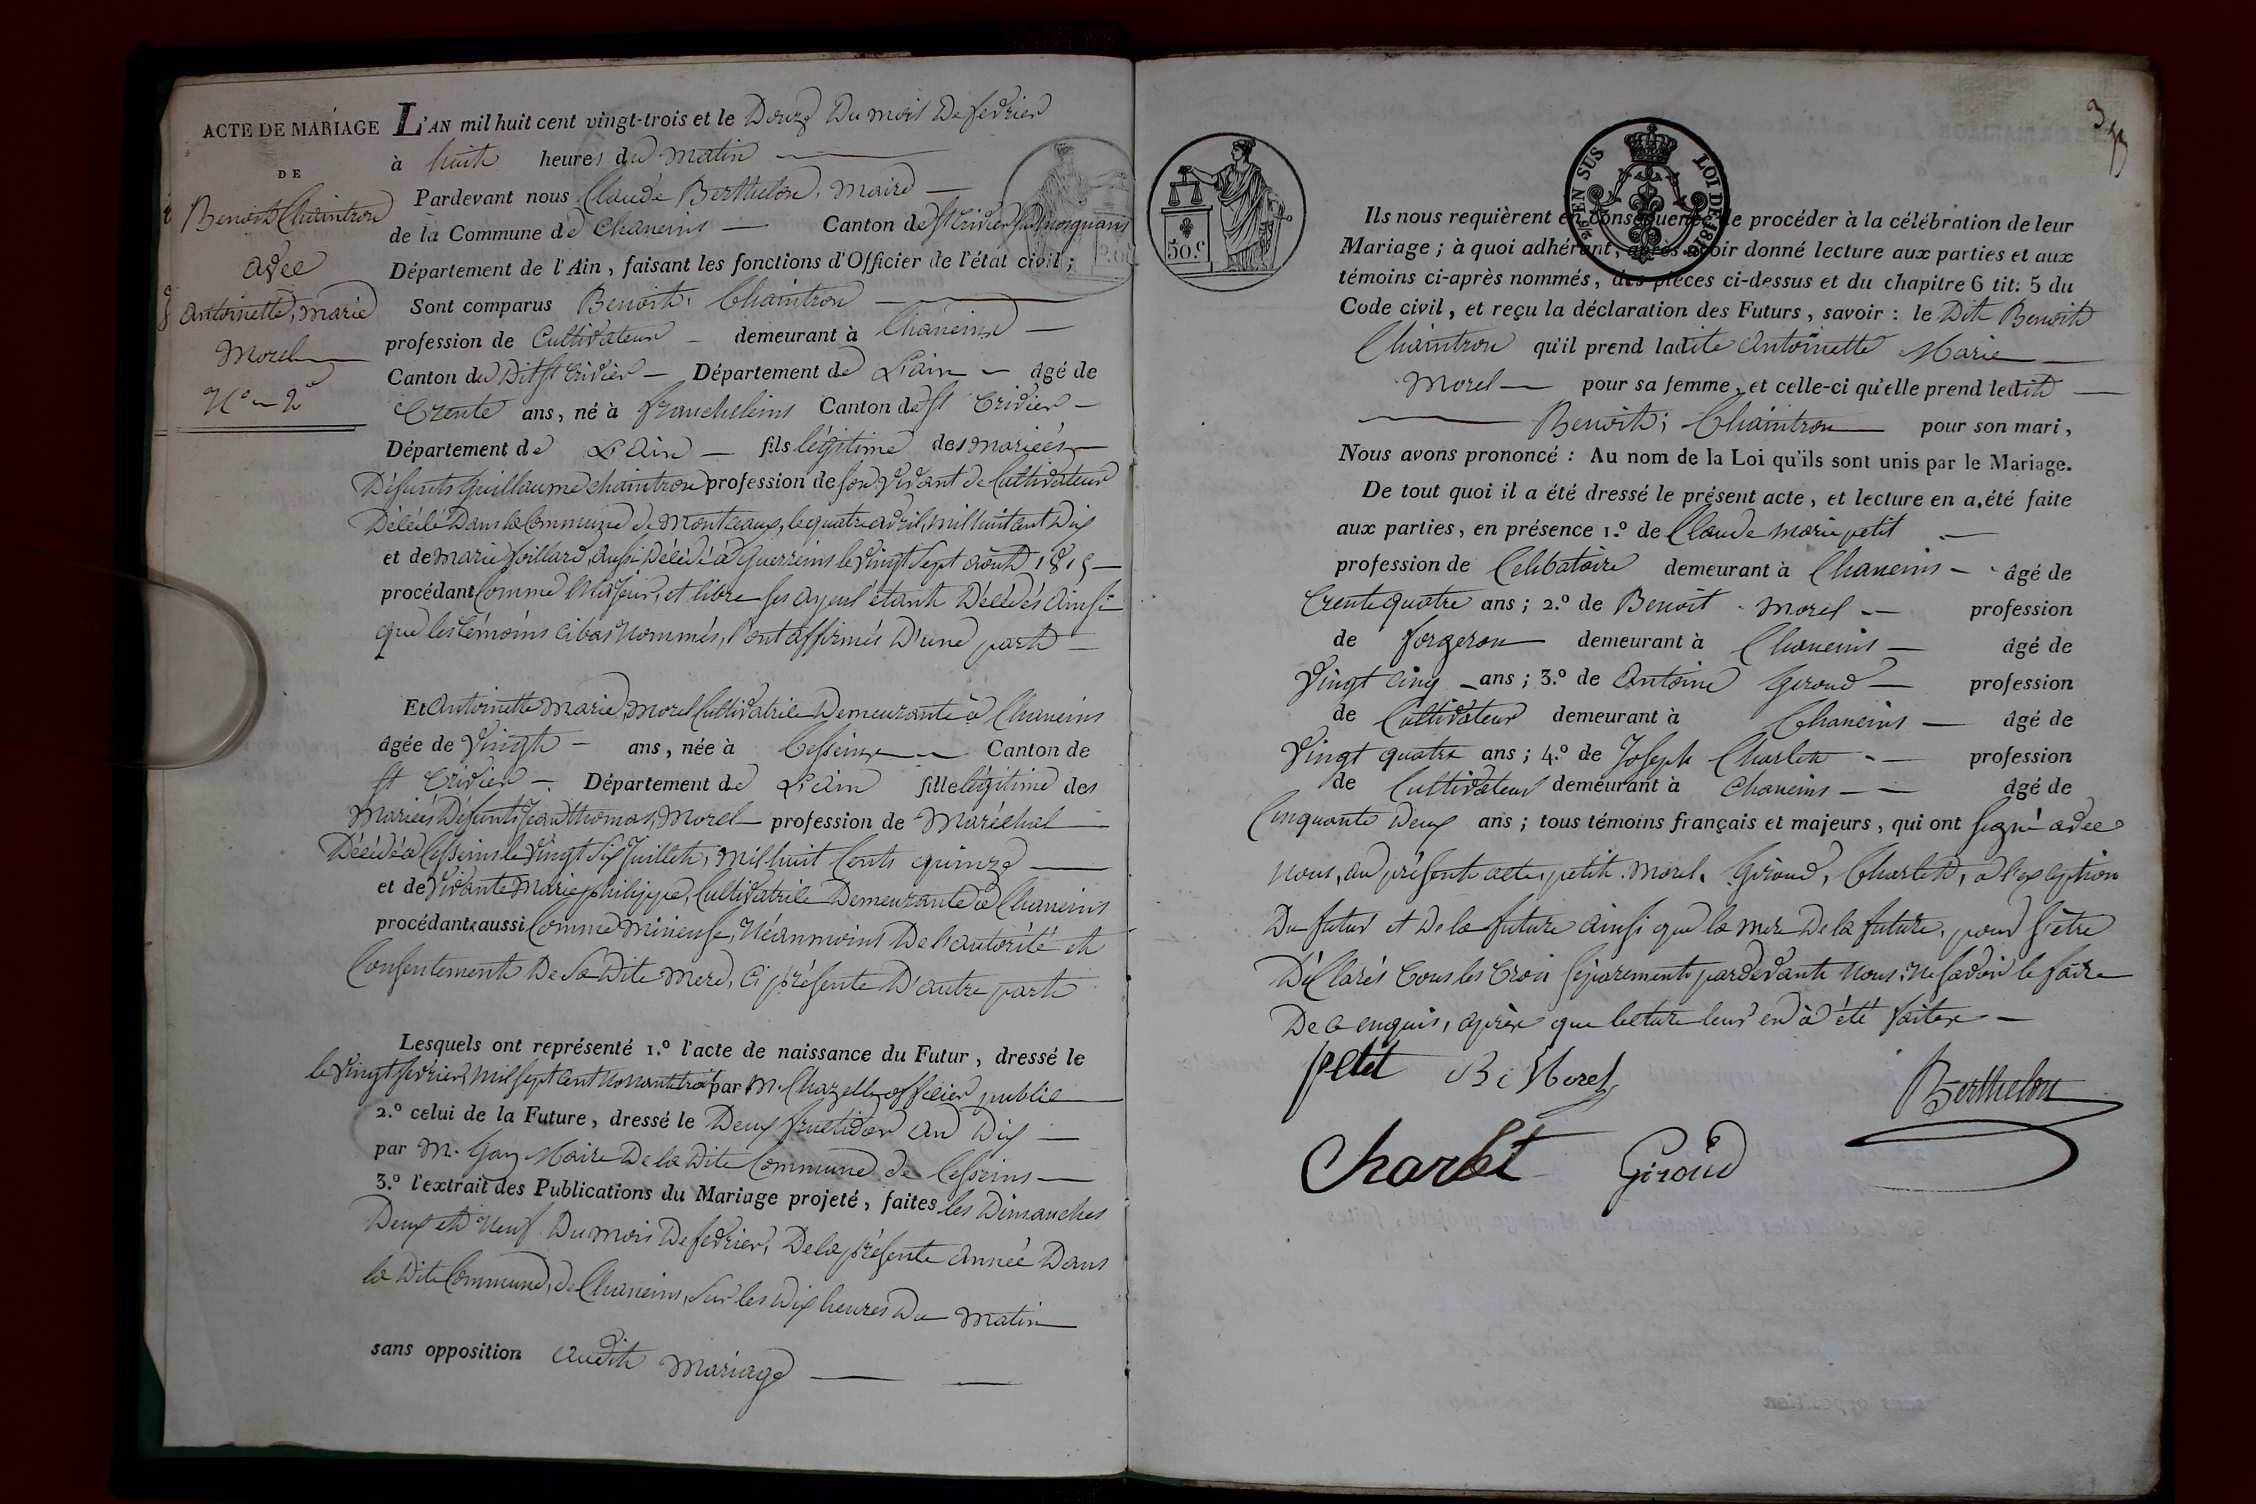 ACTE DE MARIAGE
DE
Benoit Chaintron
avec
antoinette, marie
Morel
N° 2
L'AN mil huit cent vingt-trois et le Douze Du mois De fevrier
à huit heures du Matin
Pardevant nous Claude Berthelon, Maire
de la Commune de Chaneins Canton de St Trivier sur moignans
Département de l'Ain, faisant les fonctions d'Officier de l'état civil;
Sont comparus Benoit Chaintron
profession de Cultivateur demeurant à Chaneins
Canton du Dit St Trivier Département de L'ain âgé de
Trente ans, né à francheleins Canton de St Trivier
Département de L'ain fils légitime des mariées
Défunts Guillaume Chaintron profession de son vivant de Cultivateur
Décédé Dans la Commune de Montceaux, le quatre avril mil huit cent Dix
et de Marie foillard, aussi Décédé à Guerreins le vingt sept août 1815
procédant Comme Majeur, et libre ses ayeul étant Décédés ainsi
que les témoins cibas nommés, l'ont affirmés D'une part
Et Antoinette Marie Morel Cultivatrice Demeurante à Chaneins
âgée de Vingt ans, née à Cesseins Canton de
St Trivier Département de L'ain fille légitime des
Mariées Défunt Jean thomas, Morel profession de Maréchal
Décédé à Cesseins le vingt six Juillet, mil huit Cents quinze
et de Vivante Marie philippe, Cultivatrice Demeurante à Chaneins
procédante aussi Comme Mineuse, Néanmoins De l'autorité et
Consentement De Sa Dite Mere, Ci présente D'autre part
Lesquels ont représenté 1.º l'acte de naissance du Futur, dressé le
le vingt fevrier mil sept cent nonante trois par M. Chazelle officier public
2.º celui de la Future, dressé le Deux fructidor an Dix
par M. Gay Maire De la Dite Commune de Cesseins
3.º l'extrait des Publications du Mariage projeté, faites les Dimanches
Deux et Neuf Du mois De fevrier, De la présente année Dans
la Dite Commune, de Chaneins, sur les Dix heures Du Matin
sans opposition audit Mariage
3
50.c
EN SUS
LOI DE 1816
Ils nous requièrent en conséquence de procéder à la célébration de leur
Mariage; à quoi adhérant, après avoir donné lecture aux parties et aux
témoins ci-après nommés, des pièces ci-dessus et du chapitre 6 tit: 5 du
Code civil, et reçu la déclaration des Futurs, savoir: le Dit Benoit
Chaintron qu'il prend ladite Antoinette Marie
Morel pour sa femme, et celle-ci qu'elle prend ledit
Benoit; Chaintron pour son mari,
Nous avons prononcé: Au nom de la Loi qu'ils sont unis par le Mariage.
De tout quoi il a été dressé le présent acte, et lecture en a été faite
aux parties, en présence 1.º de Claude Marie petit
profession de Celibatoire demeurant à Chaneins âgé de
Trente quatre ans; 2.º de Benoit Morel profession
de forgeron demeurant à Chaneins âgé de
Vingt cinq ans; 3.º de Antoine Geroud profession
de Cultivateur demeurant à Chaneins âgé de
Vingt quatre ans; 4.º de Joseph Charlet profession
de Cultivateur demeurant à Chaneins âgé de
Cinquante Deux ans; tous témoins français et majeurs, qui ont signé avec
nous, au présent acte, petit. Morel. Giroud, Charlet, à l'exception
Du futur et De la future ainsi que la mere De la future, pour s'être
Déclarés tous les trois séparement pardevante nous, ne savoir le faire
De ce enquis, après que lecture leur en à été faite
petit B. Morel Berthelon
Charlet Giroud